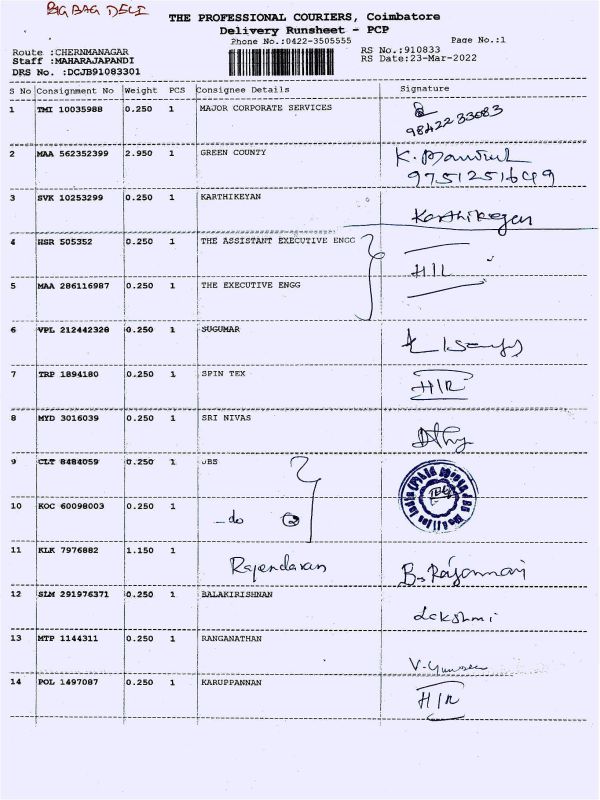 BIG BAG DELI
THE PROFESSIONAL COURIERS, Coimbatore
Delivery Runsheet - PCP
Phone No.:0422-3505555 Page No.:1
Route :CHERNMANAGAR RS No.:910833
Staff :MAHARAJAPANDI RS Date:23-Mar-2022
DRS No. :DCJB91083301
S No Consignment No Weight PCS Consignee Details Signature
1 TMI 10035988 0.250 1 MAJOR CORPORATE SERVICES
9842233083
2 MAA 562352399 2.950 1 GREEN COUNTY
9751251649
3 SVK 10253299 0.250 1 KARTHIKEYAN Karthikeyan
4 HSR 505352 0.250 1 THE ASSISTANT EXECUTIVE ENGG
5 MAA 286116987 0.250 1 THE EXECUTIVE ENGG
6 VPL 212442328 0.250 1 SUGUMAR
7 TRP 1894180 0.250 1 SPIN TEX H/R
8 MYD 3016039 0.250 1 SRI NIVAS
9 CLT 8484059 0.250 1 JBS
10 KOC 60098003 0.250 1 -do
11 KLK 7976882 1.150 1 Rajendaran
12 SLM 291976371 0.250 1 BALAKIRISHNAN Lakshmi
13 MTP 1144311 0.250 1 RANGANATHAN
14 POL 1497087 0.250 1 KARUPPANNAN H/R